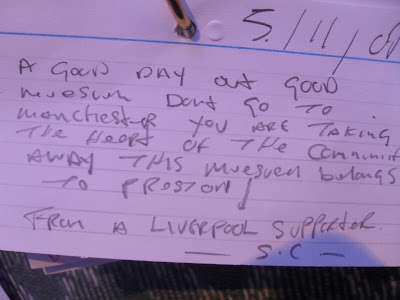 5/11/09
A GOOD DAY OUT GOOD
MUESUM DONT GO TO
MANCHESTER YOU ARE TAKING
THE HEART OF THE COMMUNIT
AWAY THIS MUESUM belongs
TO PRESTON!
FROM A LIVERPOOL SUPPORTER.
— S.C —